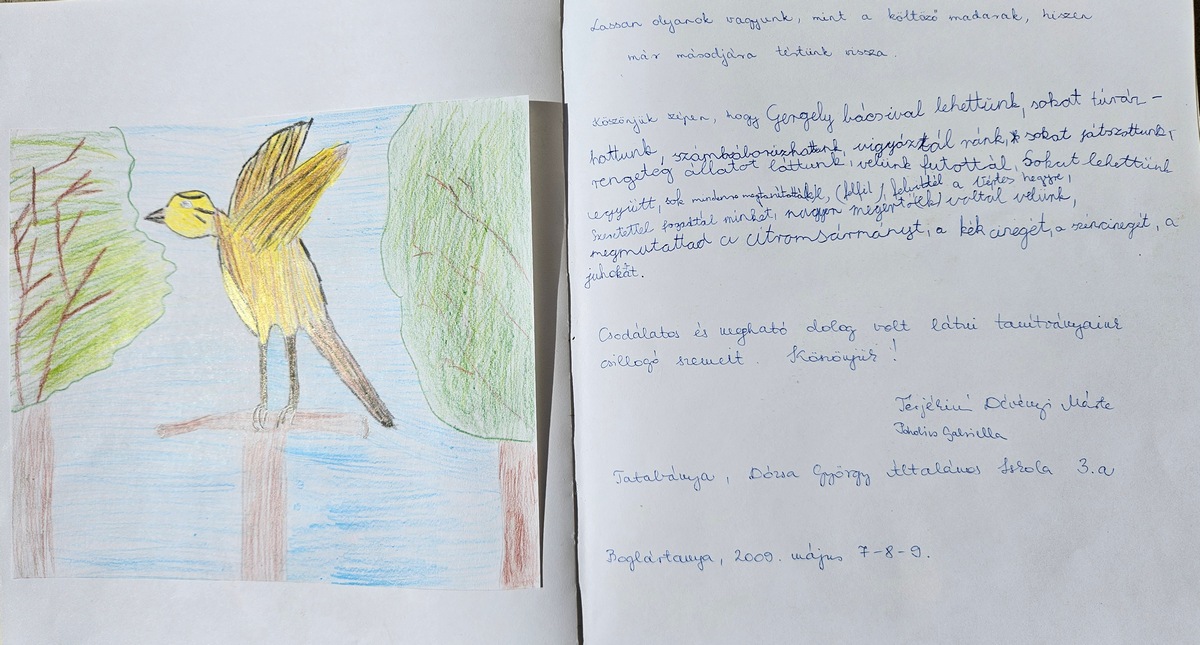 Lassan olyanok vagyunk, mint a költöző madarak, hiszen
már másodjára tértünk vissza.
Köszönjük szépen, hogy Gergely bácsival lehettünk, sokat túráz-
hattunk, számháborúzhattunk, vigyáztál ránk, sokat játszottunk,
rengeteg állatot láttunk, velünk futottál, Sokat lehettünk
együtt, sok mindenre megtanítottál, felvittél a Vértes hegyre,
Szeretettel fogadtál minket, nagyon megértő voltál velünk,
megmutattad a citromsármányt, a kék cinegét, a széncinegét, a
juhokat.
Csodálatos és megható dolog volt látni tanítványaink
csillogó szemeit. Köszönjük!
Dévényi Márta
Gabriella
Tatabánya, Dózsa György Általános Iskola 3.a
Boglártanya, 2009. május 7-8-9.